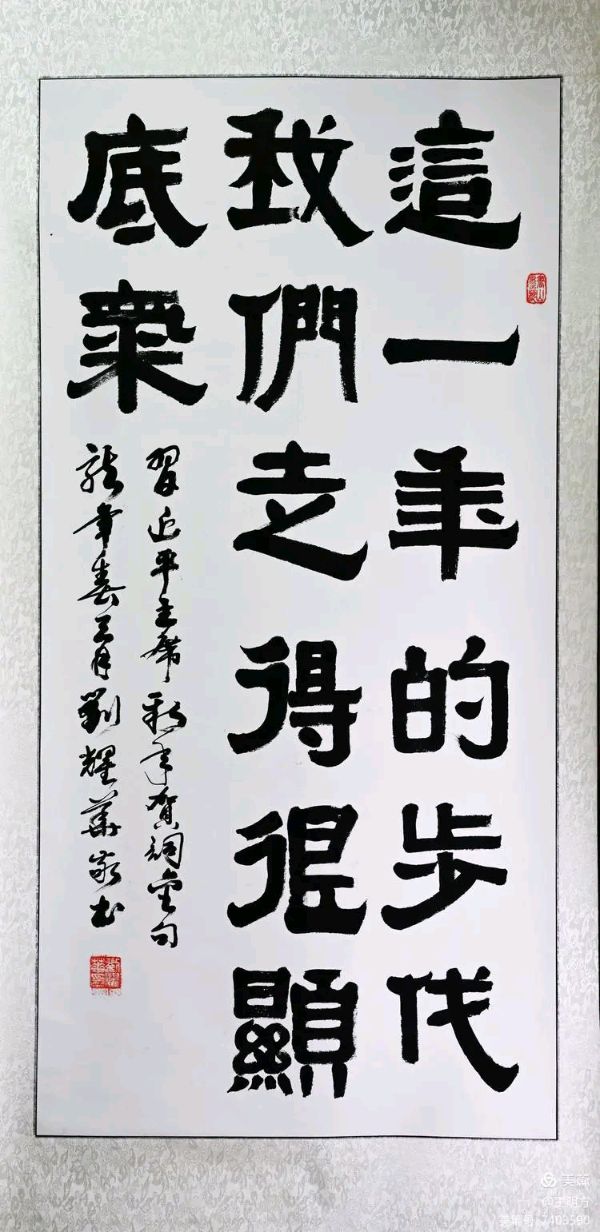 這一年的步伐
我們走得很顯
底衆
習近平主席新年賀詞金句
龍年春三月劉耀華敬书
美篇